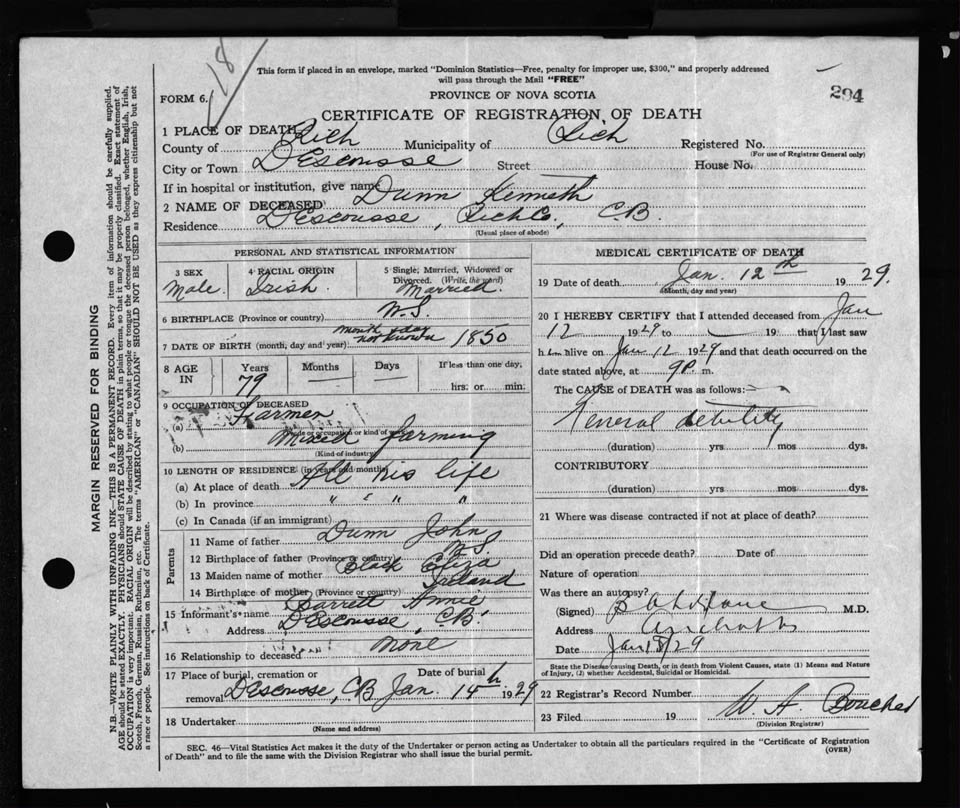 18
This form if placed in an envelope, marked "Dominion Statistics—Free, penalty for improper use, $300," and properly addressed
will pass through the Mail "FREE"
294
FORM 6.
PROVINCE OF NOVA SCOTIA
CERTIFICATE OF REGISTRATION OF DEATH
1 PLACE OF DEATH
County of Rich Municipality of Rich Registered No.
(For use of Registrar General only)
City or Town D'Escousse Street House No.
If in hospital or institution, give name
2 NAME OF DECEASED Dunn Kenneth
Residence D'Escousse, Rich Co, C.B.
(Usual place of abode)
PERSONAL AND STATISTICAL INFORMATION
3 SEX 4 RACIAL ORIGIN 5 Single, Married, Widowed or
Divorced. (Write the word)
Male. Irish. Married.
6 BIRTHPLACE (Province or country) N.S.
7 DATE OF BIRTH (month, day and year) month & day not known 1850
8 AGE IN Years Months Days If less than one day,
79 hrs. or min.
9 OCCUPATION OF DECEASED
(a) Farmer
(b) Mixed farming
(Kind of industry)
10 LENGTH OF RESIDENCE (in years and months)
(a) At place of death All his life
(b) In province " " " "
(c) In Canada (if an immigrant)
Parents
11 Name of father Dunn John
12 Birthplace of father (Province or country) N.S.
13 Maiden name of mother Black Eliza
14 Birthplace of mother (Province or country) Ireland
15 Informant's name Barrett Annie
Address D'Escousse, C.B.
16 Relationship to deceased None
17 Place of burial, cremation or Date of burial
removal D'Escousse, CB Jan. 14th 1929
18 Undertaker
(Name and address)
MEDICAL CERTIFICATE OF DEATH
19 Date of death Jan. 12th 1929.
(Month, day and year)
20 I HEREBY CERTIFY that I attended deceased from Jan
12 1929 to 19 that I last saw
him alive on Jan 12 1929 and that death occurred on the
date stated above, at 9 P. m.
The CAUSE of DEATH was as follows:
General debility
(duration) yrs mos dys.
CONTRIBUTORY
(duration) yrs mos dys.
21 Where was disease contracted if not at place of death?
Did an operation precede death? Date of
Nature of operation
Was there an autopsy?
(Signed) M.D.
Address Arichat
Date Jan 15/29
State the Disease causing Death, or in death from Violent Causes, state (1) Means and Nature
of Injury, (2) whether Accidental, Suicidal or Homicidal.
22 Registrar's Record Number
23 Filed 19 W A Boucher
(Division Registrar)
SEC. 46—Vital Statistics Act makes it the duty of the Undertaker or person acting as Undertaker to obtain all the particulars required in the "Certificate of Registration
of Death" and to file the same with the Division Registrar who shall issue the burial permit.
(OVER)
MARGIN RESERVED FOR BINDING
N.B.—WRITE PLAINLY WITH UNFADING INK—THIS IS A PERMANENT RECORD. Every item of information should be carefully supplied.
AGE should be stated EXACTLY. PHYSICIANS should STATE CAUSE OF DEATH in plain terms, so that it may be properly classified. Exact statement of
OCCUPATION is very important. RACIAL ORIGIN will be described by stating to what people or tongue the deceased person belonged, whether English, Irish,
Scotch, French, German, Russian, Ruthenian, etc. The terms "AMERICAN" or "CANADIAN" SHOULD NOT BE USED as they express citizenship but not
a race or people. See instructions on back of Certificate.